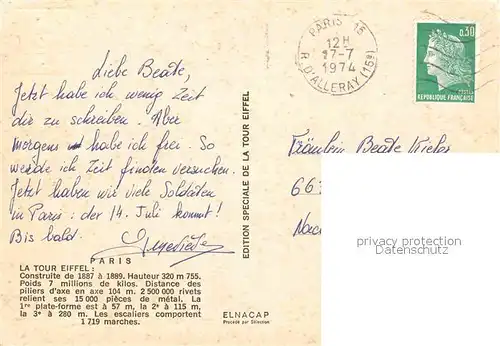 Liebe Beate,
Jetzt habe ich wenig Zeit
dir zu schreiben. Aber
Morgens habe ich frei. So
werde ich Zeit finden versuchen.
Jetzt haben wir viele Soldaten
in Paris : der 14. Juli kommt!
Bis bald.
PARIS
LA TOUR EIFFEL :
Construite de 1887 à 1889. Hauteur 320 m 755.
Poids 7 millions de kilos. Distance des
piliers d'axe en axe 104 m. 2 500 000 rivets
relient ses 15 000 pièces de métal. La
1re plate-forme est à 57 m, la 2e à 115 m,
la 3e à 280 m. Les escaliers comportent
1 719 marches.
EDITION SPECIALE DE LA TOUR EIFFEL
ELNACAP
Procédé par Sélection
PARIS 15
12H
17-7
1974
R. D'ALLERAY (15e)
0,30
POSTES
REPUBLIQUE FRANÇAISE
Fräulein Beate
66
privacy protection
watermark